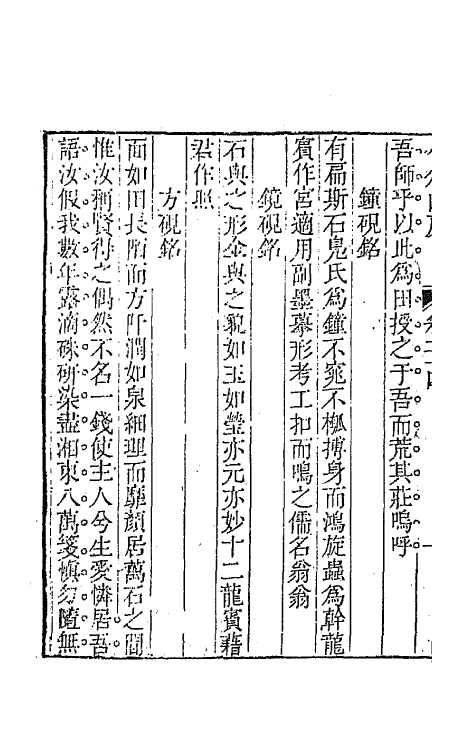 吾師乎以此為田授之于吾而荒其莊嗚呼
鐘硯銘
有扁斯石鳧氏為鐘不窕不槬摶身而鴻旋蟲為幹龍
賓作宮適用副墨摹形考工扣而鳴之儒名翁翁
鏡硯銘
石與之形金與之貌如玉如瑩亦元亦妙十二龍賓藉
君作照
方硯銘
面如田長陌而方阡潤如泉細理而驪顏居萬石之間
惟汝稱賢得之偶然不名一錢使主人兮生愛憐居吾
語汝假我數年露滴硃研染盡湘東八萬箋慎勿隨無